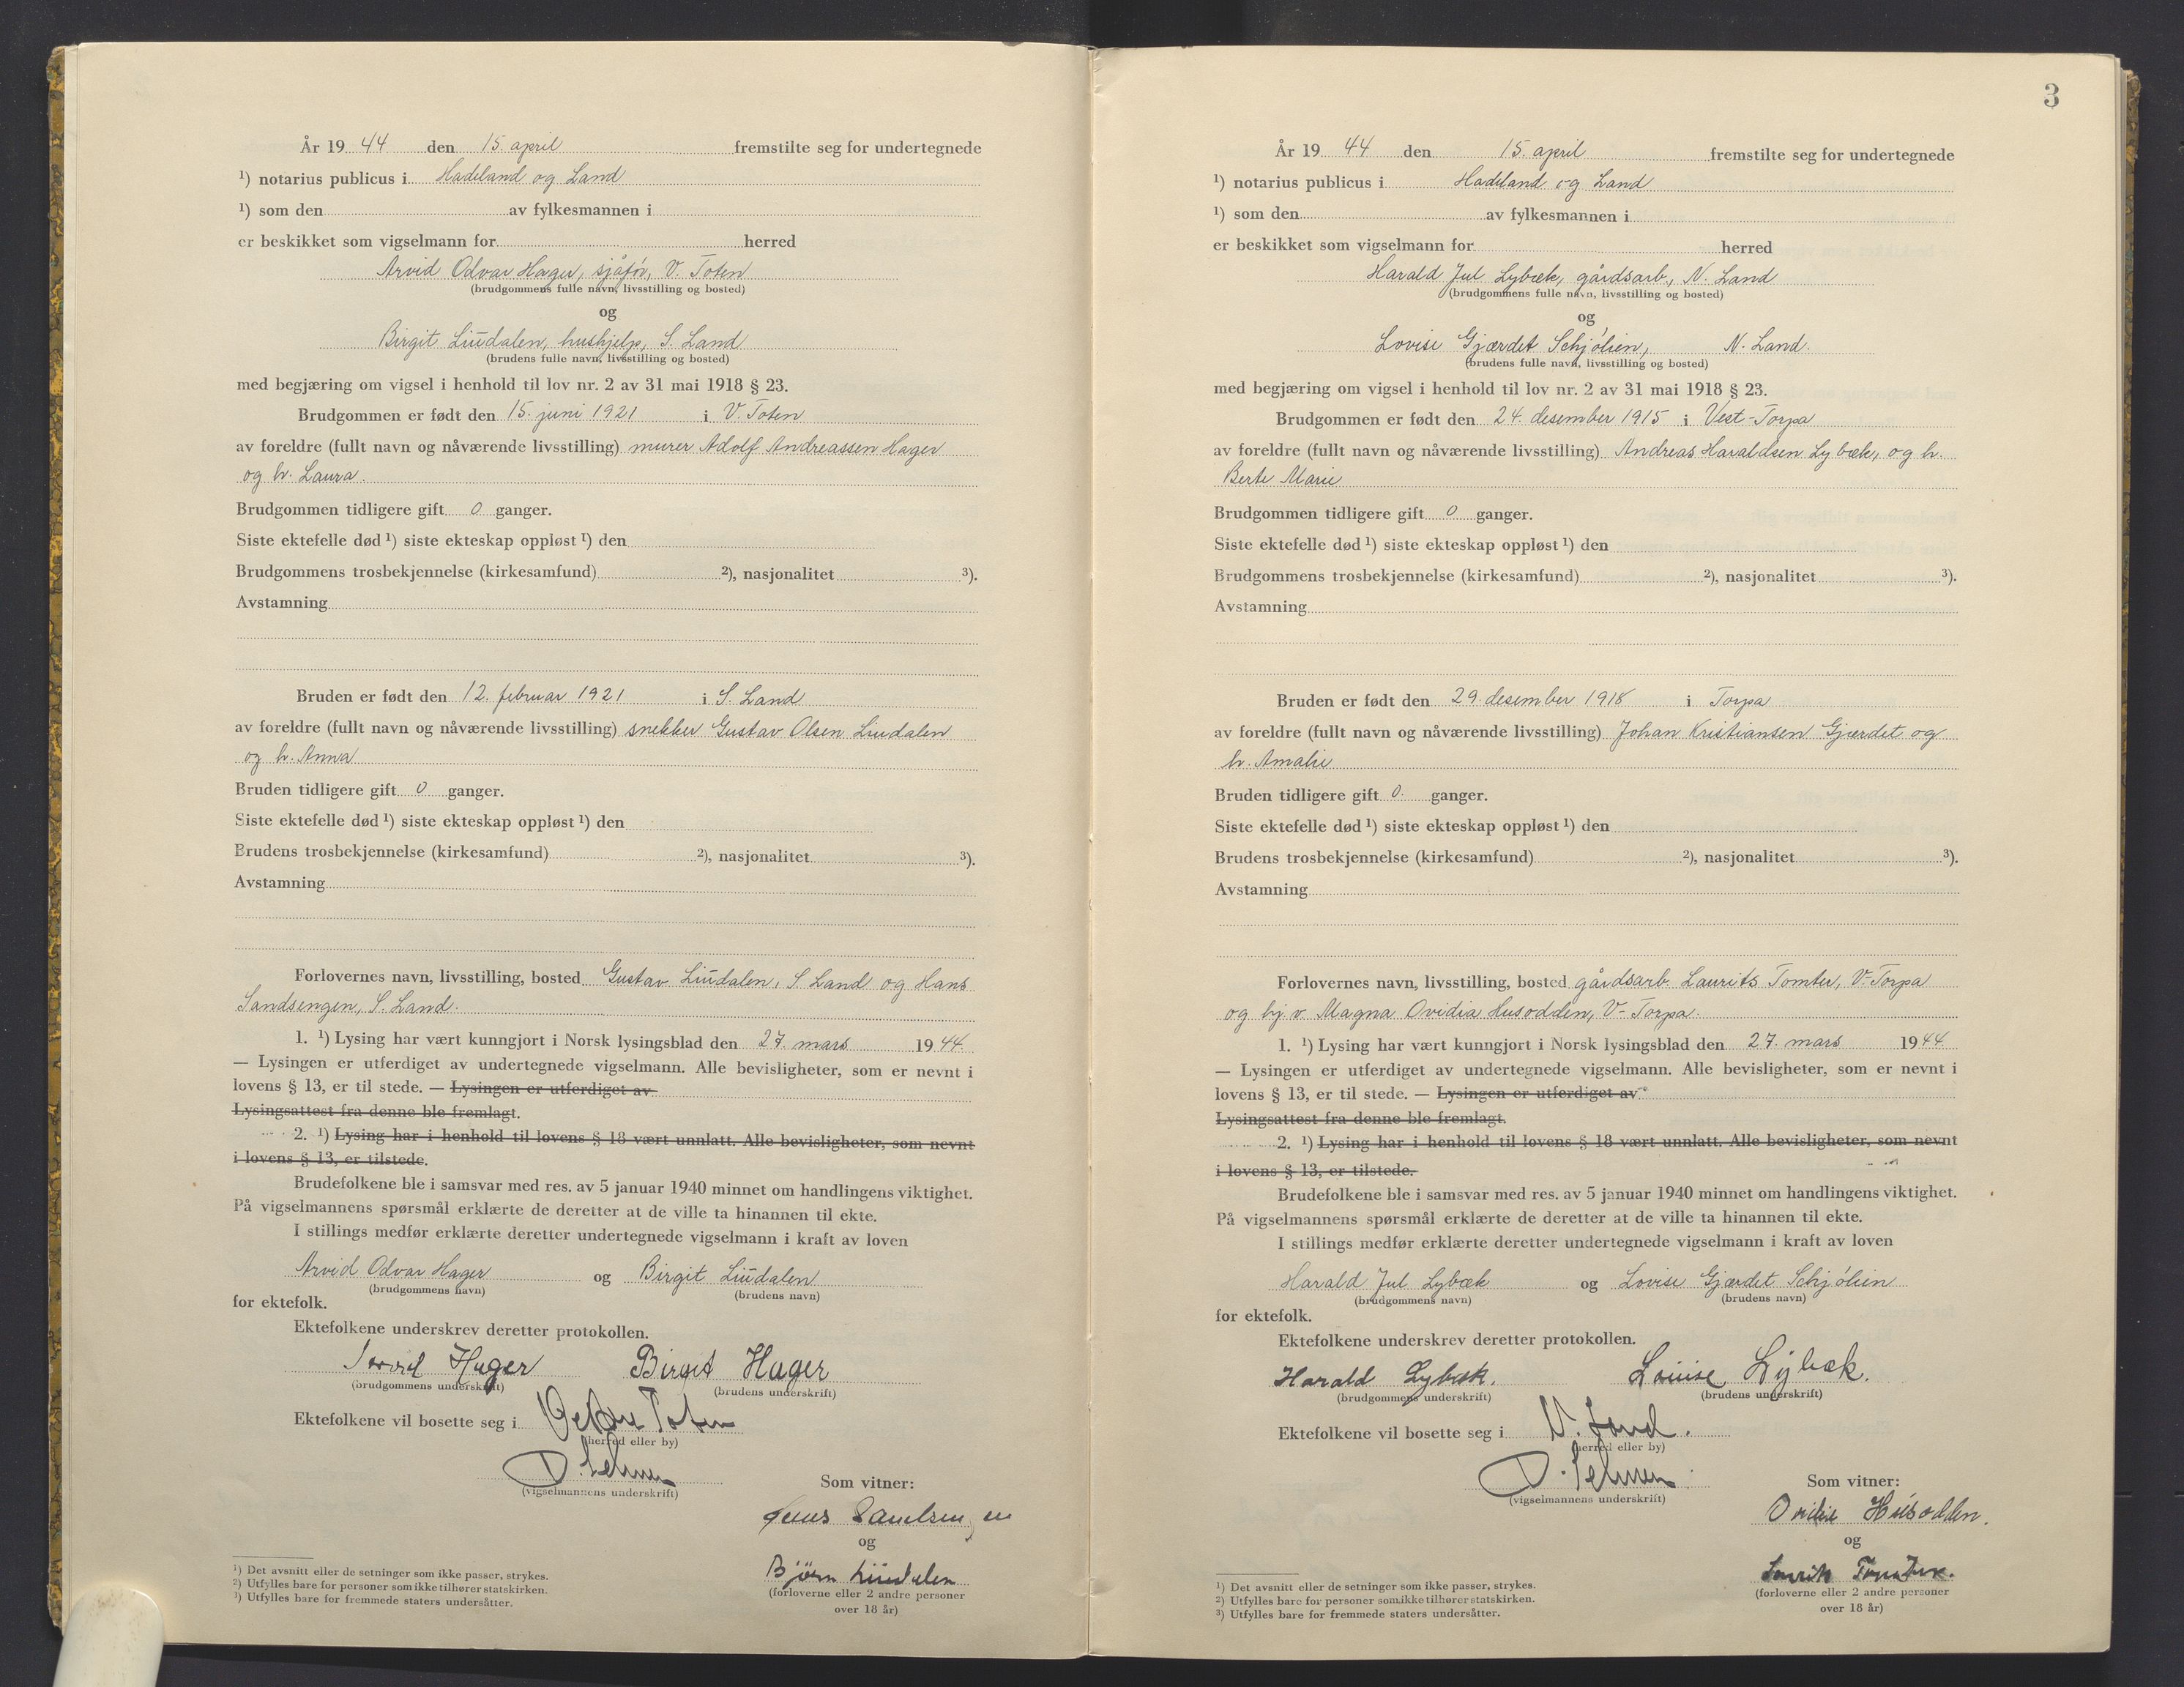 År 19 44 den 15. april fremstilte seg for undertegnede
¹) notarius publicus i Hadeland og Land
¹) som den av fylkesmannen i
er beskikket som vigselmann for herred
Arvid Odvar Hager, sjåfór, V. Toten
(brudgommens fulle navn, livsstilling og bosted)
og
Birgit Liudalen, hushjelp, S. Land
(brudens fulle navn, livsstilling og bosted)
med begjæring om vigsel i henhold til lov nr. 2 av 31 mai 1918 § 23.
Brudgommen er født den 15. juni 1921 i V. Toten
av foreldre (fullt navn og nåværende livsstilling) murer Adolf Andreassen Hager
og h. Laura.
Brudgommen tidligere gift 0 ganger.
Siste ektefelle død ¹) siste ekteskap oppløst ¹) den
Brudgommens trosbekjennelse (kirkesamfund) ²), nasjonalitet ³).
Avstamning
Bruden er født den 12. februar 1921 i S. Land
av foreldre (fullt navn og nåværende livsstilling) snekker Gustav Olsen Liudalen
og h. Anna
Bruden tidligere gift 0 ganger.
Siste ektefelle død ¹) siste ekteskap oppløst ¹) den
Brudens trosbekjennelse (kirkesamfund) ²), nasjonalitet ³).
Avstamning
Forlovernes navn, livsstilling, bosted Gustav Liudalen, S. Land og Hans
Sandsengen, S. Land.
1. ¹) Lysing har vært kunngjort i Norsk lysingsblad den 27. mars 1944.
— Lysingen er utferdiget av undertegnede vigselmann. Alle bevisligheter, som er nevnt i
lovens § 13, er til stede. — Lysingen er utferdiget av
Lysingsattest fra denne ble fremlagt.
2. ¹) Lysing har i henhold til lovens § 18 vært unnlatt. Alle bevisligheter, som nevnt
i lovens § 13, er tilstede.
Brudefolkene ble i samsvar med res. av 5 januar 1940 minnet om handlingens viktighet.
På vigselmannens spørsmål erklærte de deretter at de ville ta hinannen til ekte.
I stillings medfør erklærte deretter undertegnede vigselmann i kraft av loven
Arvid Odvar Hager og Birgit Liudalen
(brudgommens navn) (brudens navn)
for ektefolk.
Ektefolkene underskrev deretter protokollen.
Arvid Hager Birgit Hager
(brudgommens underskrift) (brudens underskrift)
Ektefolkene vil bosette seg i Vestre Toten
(herred eller by)
(vigselmannens underskrift)
Som vitner:
og
Bjørn Liudalen
(forloverne eller 2 andre personer
over 18 år)
¹) Det avsnitt eller de setninger som ikke passer, strykes.
²) Utfylles bare for personer som ikke tilhører statskirken.
³) Utfylles bare for fremmede staters undersåtter.
3
År 19 44 den 15. april fremstilte seg for undertegnede
¹) notarius publicus i Hadeland og Land
¹) som den av fylkesmannen i
er beskikket som vigselmann for herred
Harald Jul Lybæk, gårdsarb., N. Land
(brudgommens fulle navn, livsstilling og bosted)
og
Lovise Gjærdet Schjólien, N. Land.
(brudens fulle navn, livsstilling og bosted)
med begjæring om vigsel i henhold til lov nr. 2 av 31 mai 1918 § 23.
Brudgommen er født den 24. desember 1915 i Vest-Torpa
av foreldre (fullt navn og nåværende livsstilling) Andreas Haraldsen Lybæk, og h.
Berte Marie
Brudgommen tidligere gift 0 ganger.
Siste ektefelle død ¹) siste ekteskap oppløst ¹) den
Brudgommens trosbekjennelse (kirkesamfund) ²), nasjonalitet ³).
Avstamning
Bruden er født den 29. desember 1918 i Torpa
av foreldre (fullt navn og nåværende livsstilling) Johan Kristiansen Gjærdet og
h. Amalie
Bruden tidligere gift 0. ganger.
Siste ektefelle død ¹) siste ekteskap oppløst ¹) den
Brudens trosbekjennelse (kirkesamfund) ²), nasjonalitet ³).
Avstamning
Forlovernes navn, livsstilling, bosted gårdsarb. Laurits Tomter, V-Torpa
og hj. v. Magna Ovidia Husodden, V-Torpa.
1. ¹) Lysing har vært kunngjort i Norsk lysingsblad den 27. mars 1944
— Lysingen er utferdiget av undertegnede vigselmann. Alle bevisligheter, som er nevnt i
lovens § 13, er til stede. — Lysingen er utferdiget av
Lysingsattest fra denne ble fremlagt.
2. ¹) Lysing har i henhold til lovens § 18 vært unnlatt. Alle bevisligheter, som nevnt
i lovens § 13, er tilstede.
Brudefolkene ble i samsvar med res. av 5 januar 1940 minnet om handlingens viktighet.
På vigselmannens spørsmål erklærte de deretter at de ville ta hinannen til ekte.
I stillings medfør erklærte deretter undertegnede vigselmann i kraft av loven
Harald Jul Lybæk og Lovise Gjærdet Schjólien
(brudgommens navn) (brudens navn)
for ektefolk.
Ektefolkene underskrev deretter protokollen.
Harald Lybæk. Lovise Lybæk.
(brudgommens underskrift) (brudens underskrift)
Ektefolkene vil bosette seg i N. Land.
(herred eller by)
(vigselmannens underskrift)
Som vitner:
Ovidie Husodden.
og
(forloverne eller 2 andre personer
over 18 år)
¹) Det avsnitt eller de setninger som ikke passer, strykes.
²) Utfylles bare for personer som ikke tilhører statskirken.
³) Utfylles bare for fremmede staters undersåtter.